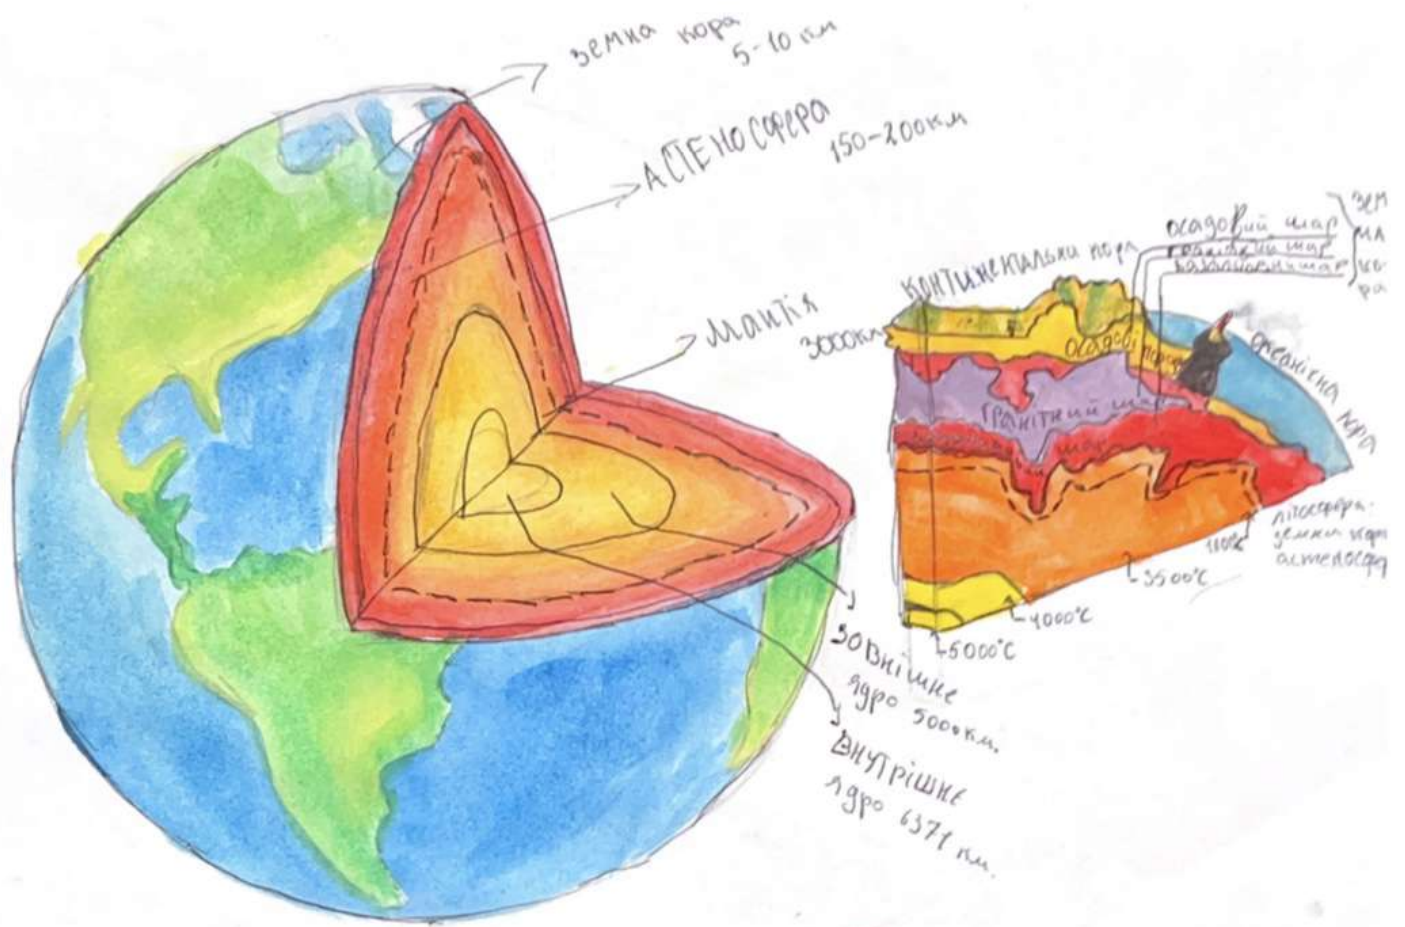 земна кора
5-10 км
АСТЕНОСФЕРА
150-200км
Мантія
3000км
Зовнішнє
ядро 5000км.
Внутрішнє
ядро 6371 км.
континентальна кора
осадовий шар
гранітний шар
базальтовий шар
зем
на
ко-
ра
осадові породи
гранітний шар
шар
океанічна кора
літосфера-
земна кора
астеносфера
1100°C
3500°C
4000°C
5000°C